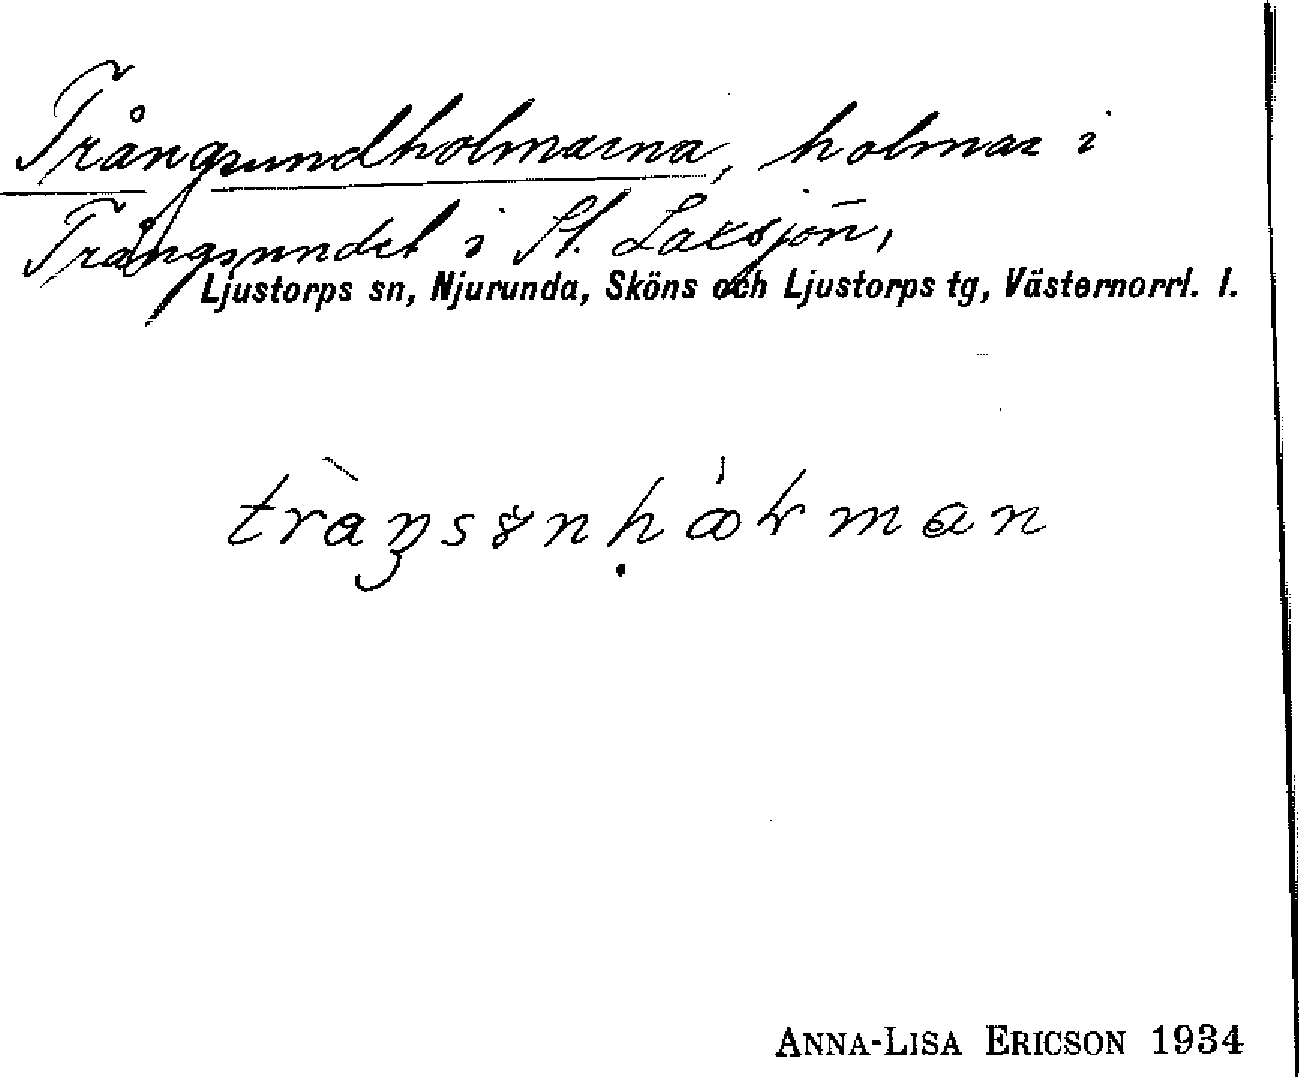 Trångsundholmarna, holmar i
Trångsundet i St. Laxsjön,
Ljustorps sn, Njurunda, Sköns och Ljustorps tg, Västernorrl. l.
ANNA-LISA ERICSON 1934